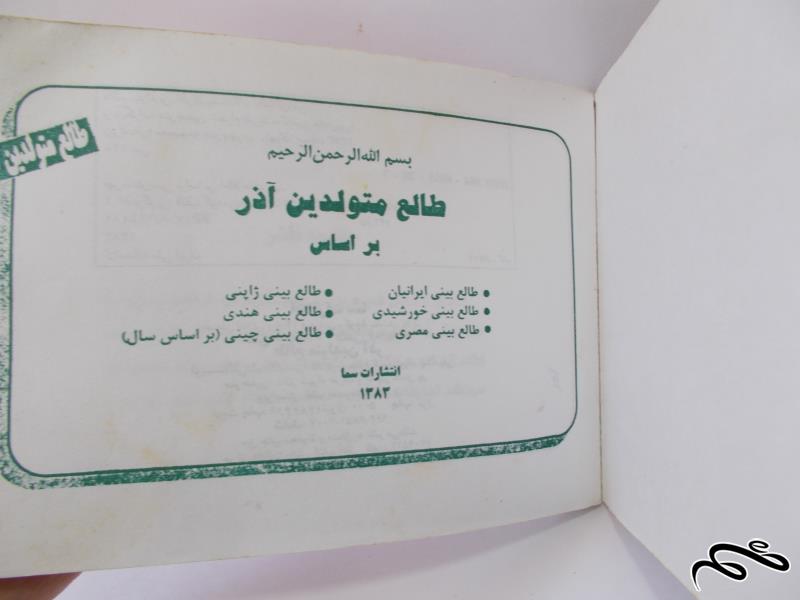 طالع متولدین
بسم الله الرحمن الرحیم
طالع متولدین آذر
بر اساس
• طالع بینی ایرانیان • طالع بینی ژاپنی
• طالع بینی خورشیدی • طالع بینی هندی
• طالع بینی مصری • طالع بینی چینی (بر اساس سال)
انتشارات سما
۱۳۸۳